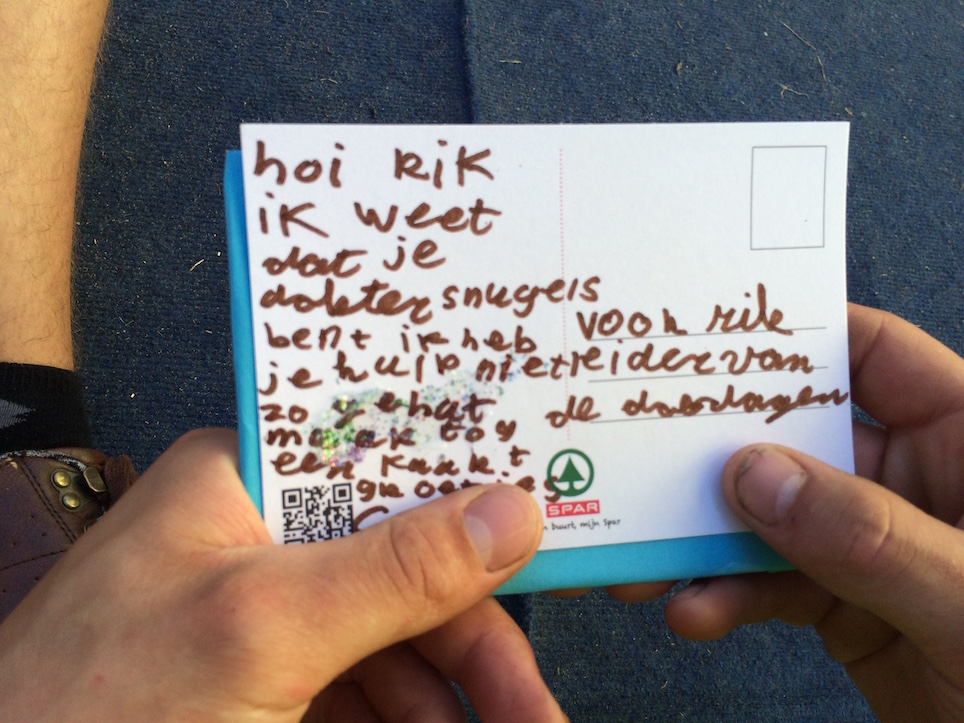 hoi Rik
ik weet
dat je
dokter snugels
bent ik heb
je hulp niet
zo gehat
maak tog
een kaart
groetjes
voor rik
leider van
de doedagen
SPAR
n buurt, mijn Spar